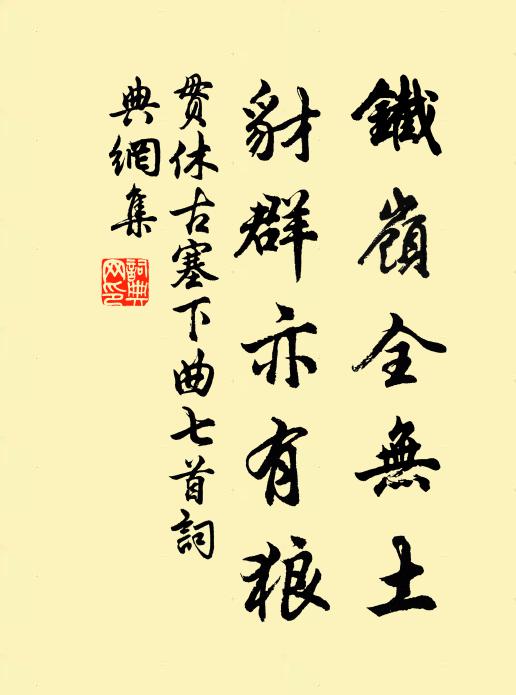 鐵嶺全無土
豺群亦有狼
貫休古塞下曲七首詞
典網集
詞典網印